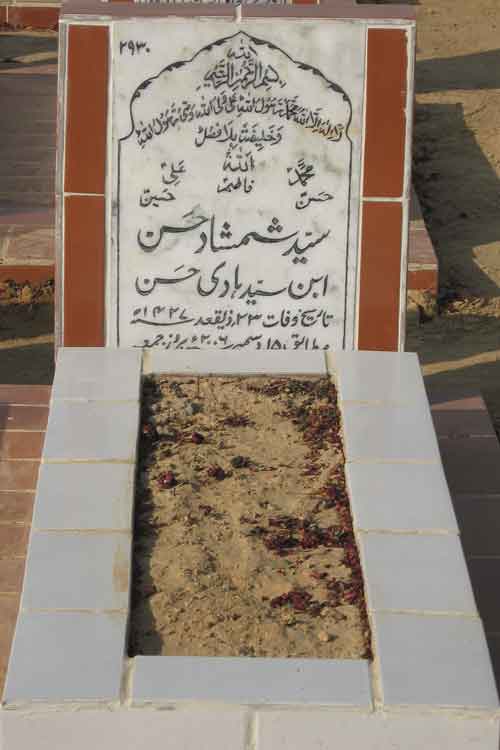 ۲۹۳۰
بسم اللہ الرحمن الرحیم
لا الہ الا اللہ محمد رسول اللہ علی ولی اللہ وصی رسول اللہ
وخلیفتہ بلا فصل
اللہ
محمد فاطمہ علی
حسن حسین
سید شمشاد حسن
ابن سید ہادی حسن
تاریخ وفات ۲۳ ذیقعد ۱۴۲۷ھ
مطابق ۱۵ دسمبر ۲۰۰۶ء بروز جمعہ